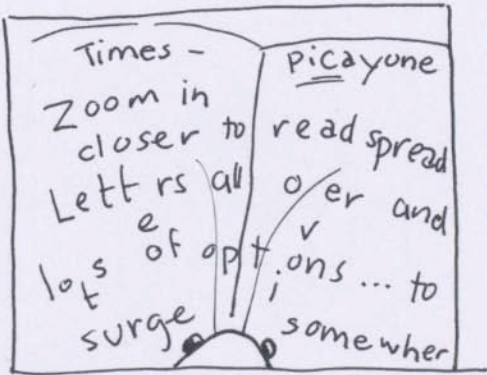 Times - picayone
Zoom in
closer to read spread
Letters all over and
lots of options... to
surge somewher